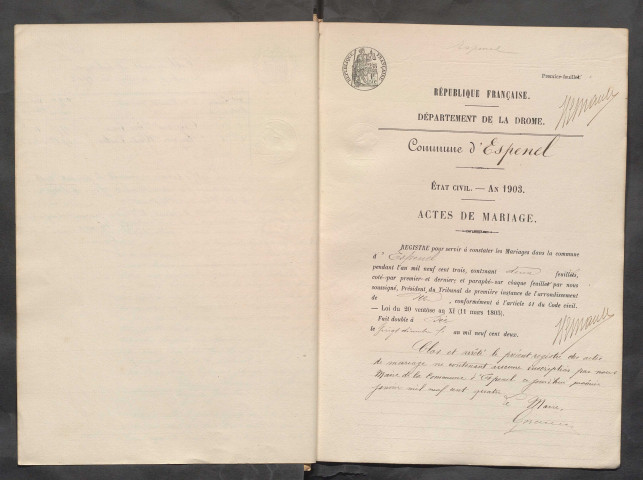 Espenel
Premier feuillet
RÉPUBLIQUE FRANÇAISE.
DÉPARTEMENT DE LA DROME.
Commune d'Espenel
ÉTAT CIVIL. — AN 1903.
ACTES DE MARIAGE.
REGISTRE pour servir à constater les Mariages dans la commune
d'Espenel
pendant l'an mil neuf cent trois, contenant deux feuillets,
coté par premier et dernier, et paraphé sur chaque feuillet par nous
soussigné, Président du Tribunal de première instance de l'arrondissement
de Die, conformément à l'article 41 du Code civil.
— Loi du 20 ventôse an XI (11 mars 1803).
Fait double à Die
le au mil neuf cent deux.
Clos et arrêté le présent registre des actes
de mariage ne contenant aucune inscription par nous
Maire de la Commune d'Espenel ce premier
janvier mil neuf cent quatre
Le Maire,